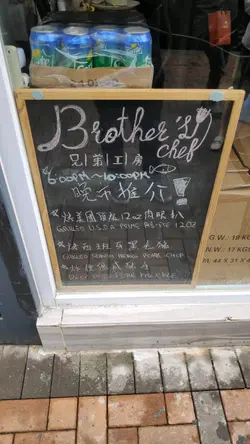 Brother's
Chef
兄弟工房
6:00PM~10:00PM
晚市推介!
烧美國頂級12oz肉眼扒
GRILLED U.S.D.A PRIME RIB-EYE 12OZ
烧西班牙黑毛豬
GRILLED SPANISH PORK CHOP
德國咸豬手
G.W.: 18KG
N.W.: 17KG